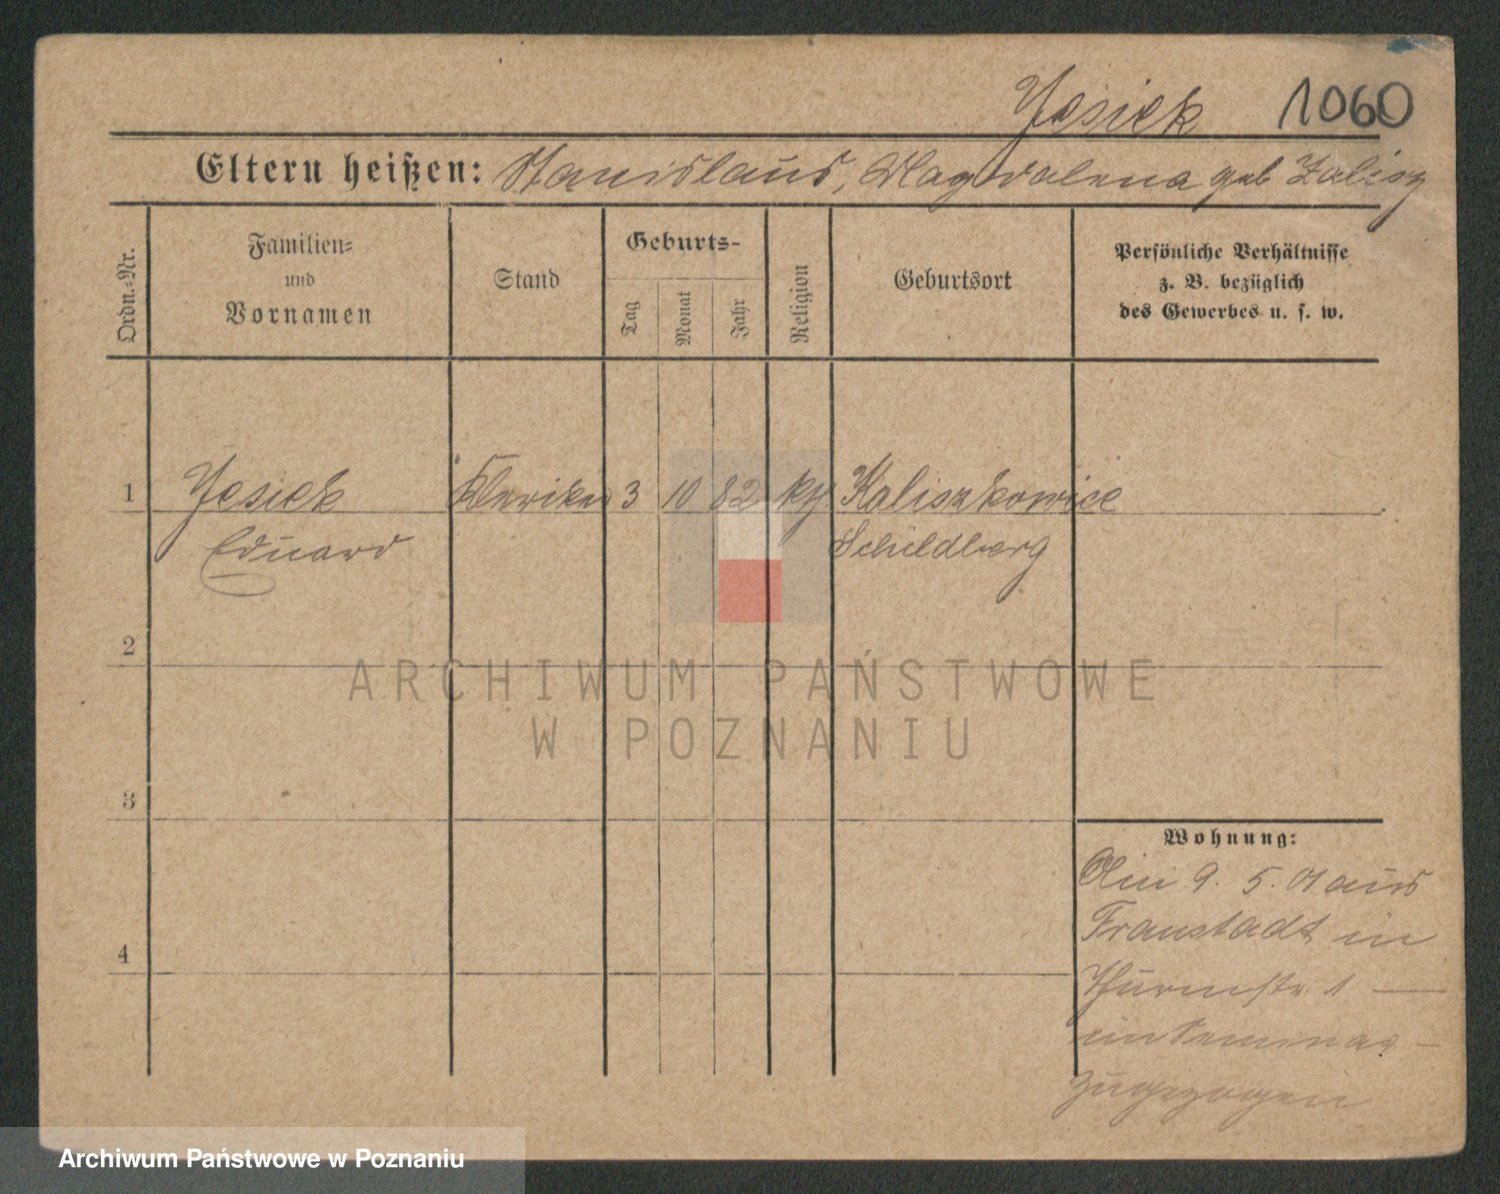 Jesiek 1060
Eltern heißen: Stanislaus, Magdalena geb Zalisz
Ordn.-Nr.
Familien-
und
Vornamen
Stand
Geburts-
Tag
Monat
Jahr
Religion
Geburtsort
Persönliche Verhältnisse
z. B. bezüglich
des Gewerbes u. s. w.
1 Jesiek Kleriker 3 10 82 Kaliszkowice
Eduard Schildberg
2
ARCHIWUM PAŃSTWOWE
W POZNANIU
3
Wohnung:
Am 9. 5. 01 aus
Fraustadt in
4
Thurmstr. 1 —
im Seminar —
zugezogen
Archiwum Państwowe w Poznaniu